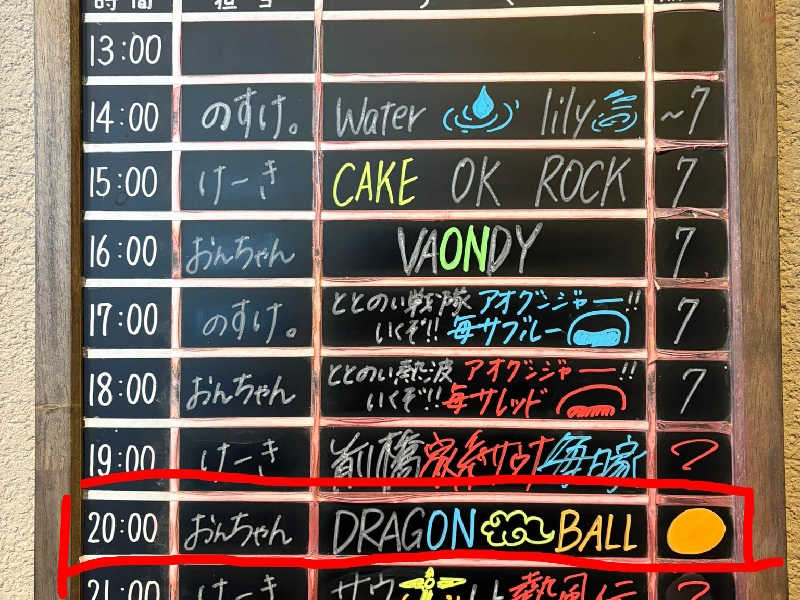 時間 担当
13:00
14:00 のすけ。 Water lily ~7
15:00 けーき CAKE OK ROCK 7
16:00 おんちゃん VAONDY 7
17:00 のすけ。 ととのい戦隊 アオグンジャー!!
いくぞ!! 毎サブルー 7
18:00 おんちゃん ととのい熱波 アオグンジャー!!
いくぞ!! 毎サレッド 7
19:00 けーき 前橋 家系サウナ 毎日家 ?
20:00 おんちゃん DRAGON BALL
21:00 けーき サウ 熱風伝 ?